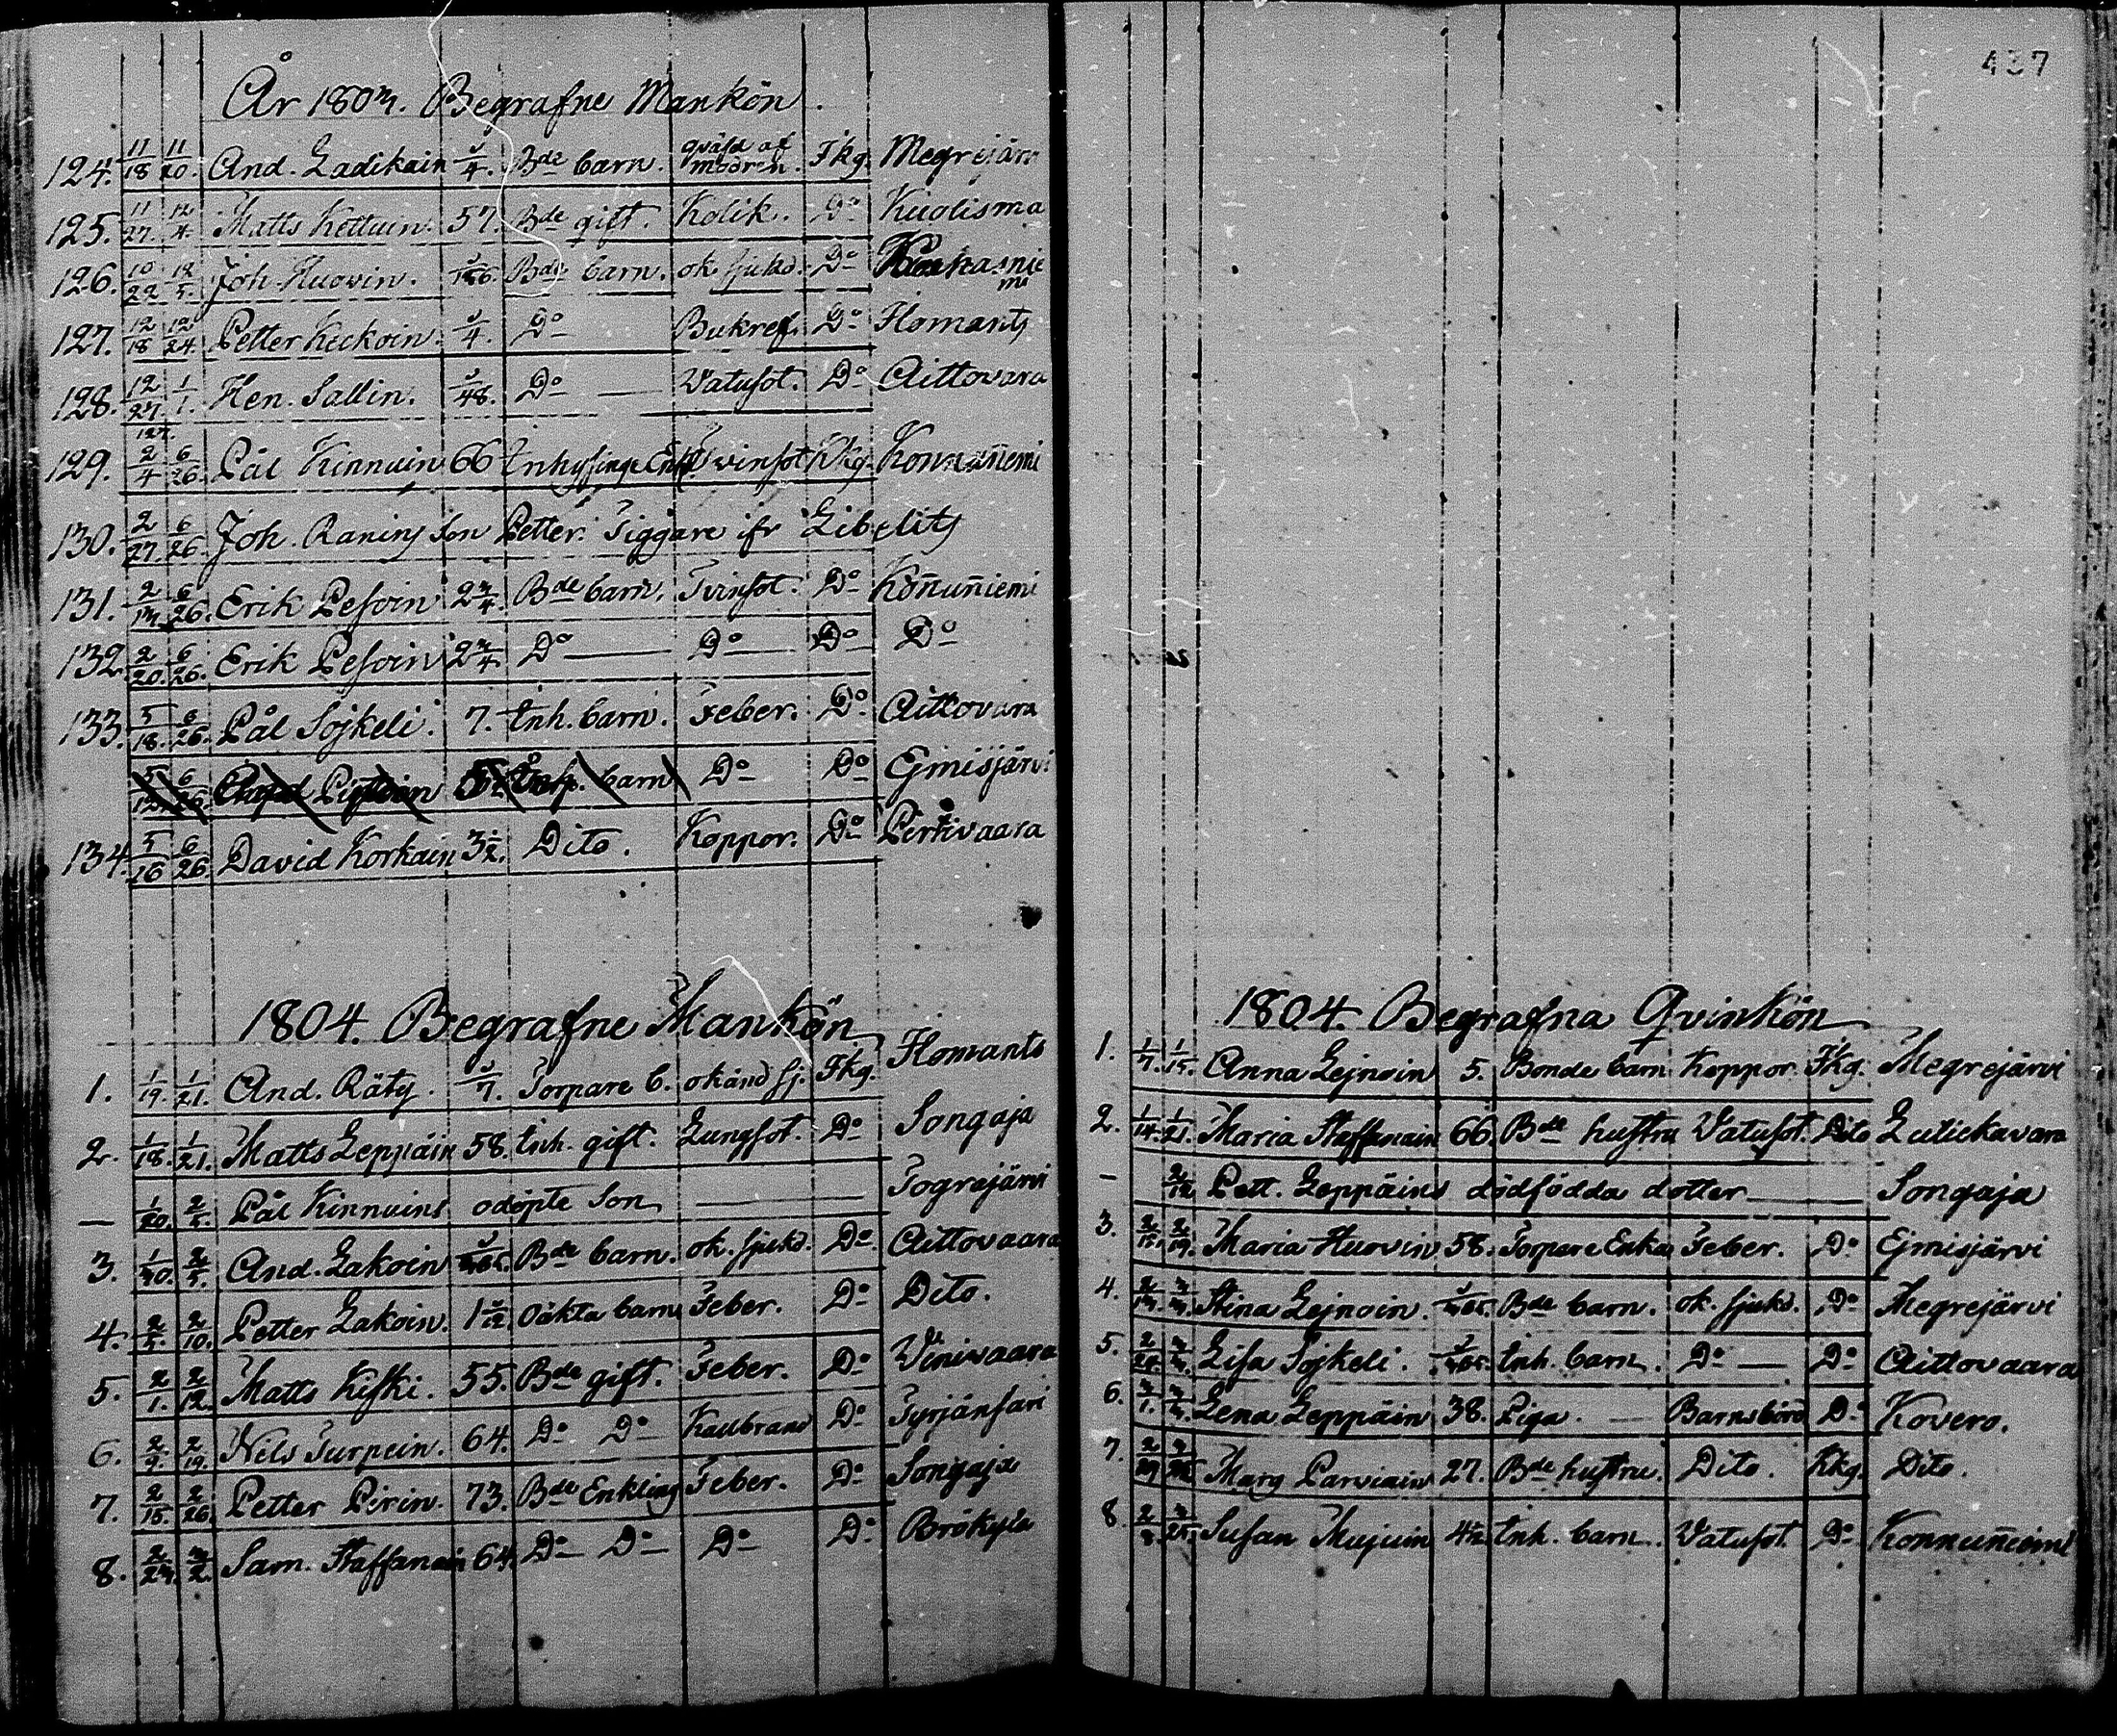 437
År 1803. Begrafne Mankön.
124. 11/18 11/20. And. Ladikain 3/4. Bde barn. qväfd af modren. Fkg. Megrejärv
125. 11/27. 12/4. Matts Kettuin. 57. Bde gift. Kolik. Do Kuolisma
126. 10/22 12/5. Joh. Huovin. Bde barn. ok. sjukd. Do
127. 12/18 12/24. Petter Keckoin. 3/4. Do Bukref. Do Ilomants
128. 12/27 1/1. Hen. Sallin. 3/48. Do — Vatusot. Do Aittovara
127.
129. 2/4 6/26. Pål Kinnuin 66 Inhysinge Enkl. Tvinsot Kkg. Konnunniemi
130. 2/27. 6/26. Joh. Ranins son Petter. Tiggare ifr Libelits
131. 2/13. 6/26. Erik Pesoin 2 3/4. Bde barn. Tvinsot. Do Konnunniemi
132. 2/20. 6/26. Erik Pesoin 2 3/4. Do — Do — Do Do
133. 5/18. 6/26. Pål Sojkeli. 7. Inh. barn. Feber. Do Aittovara
5/12. 6/26. barn Do Do Ejmisjärvi
134. 5/16 6/26. David Korkain 3 1/2. Dito. Koppor. Do Pertivaara
1804. Begrafne Mankön
1. 1/19. 1/21. And. Räty. 3/7. Torpare b. okänd sj. Fkg. Ilomants
2. 1/18. 1/21. Matts Leppäin 58. Inh. gift. Lungsot. Do Songaja
— 1/20. 2/5. Pål Kinnuins odöpte son — Togrejärvi
3. 1/30. 2/5. And. Lakoin Bde barn. ok. sjukd. Do Aittovaara
4. 2/5. 2/10. Petter Lakoin. oäkta barn Feber. Do Dito.
5. 2/1. 2/12. Matts Kiski. 55. Bde gift. Feber. Do Vinivaara
6. 2/9. 2/19. Nils Turpein. 64. Do Do Kallbrand Do Tyrjänsari
7. 2/15. 2/26. Petter Pirin. 73. Bde Enkling Feber. Do Songaja
8. 2/23. 3/2. Sam. Staffanain 64. Do Do Do Do Brökylä
1804. Begrafna Qvinkön
1. 1/7. 1/15. Anna Lejnoin 5. Bonde barn Koppor Fkg. Megrejärvi
2. 1/14. 1/21. Maria Staffanain 66. Bde hustru Vatusot. Dito Lutickavara
— 2/12 Pett. Leppäins dödfödda dotter — Songaja
3. 2/15. 2/19. Maria Huovin 58. Torpare Enka Feber. Do Ejmisjärvi
4. Stina Lejnoin. Bde barn. ok. sjukd. Do Megrejärvi
5. Lisa Sojkeli. Inh. barn. Do — Do Aittovaara
6. Lena Leppäin 38. Piga. — Barnsbörd Do Kovero.
7. Marg Parviain 27. Bde hustru. Dito. Kkg. Dito.
8. 2/8. 3/25. Susan Mujuin 4 1/2 Inh. barn. Vatusot. Do Konnunniemi